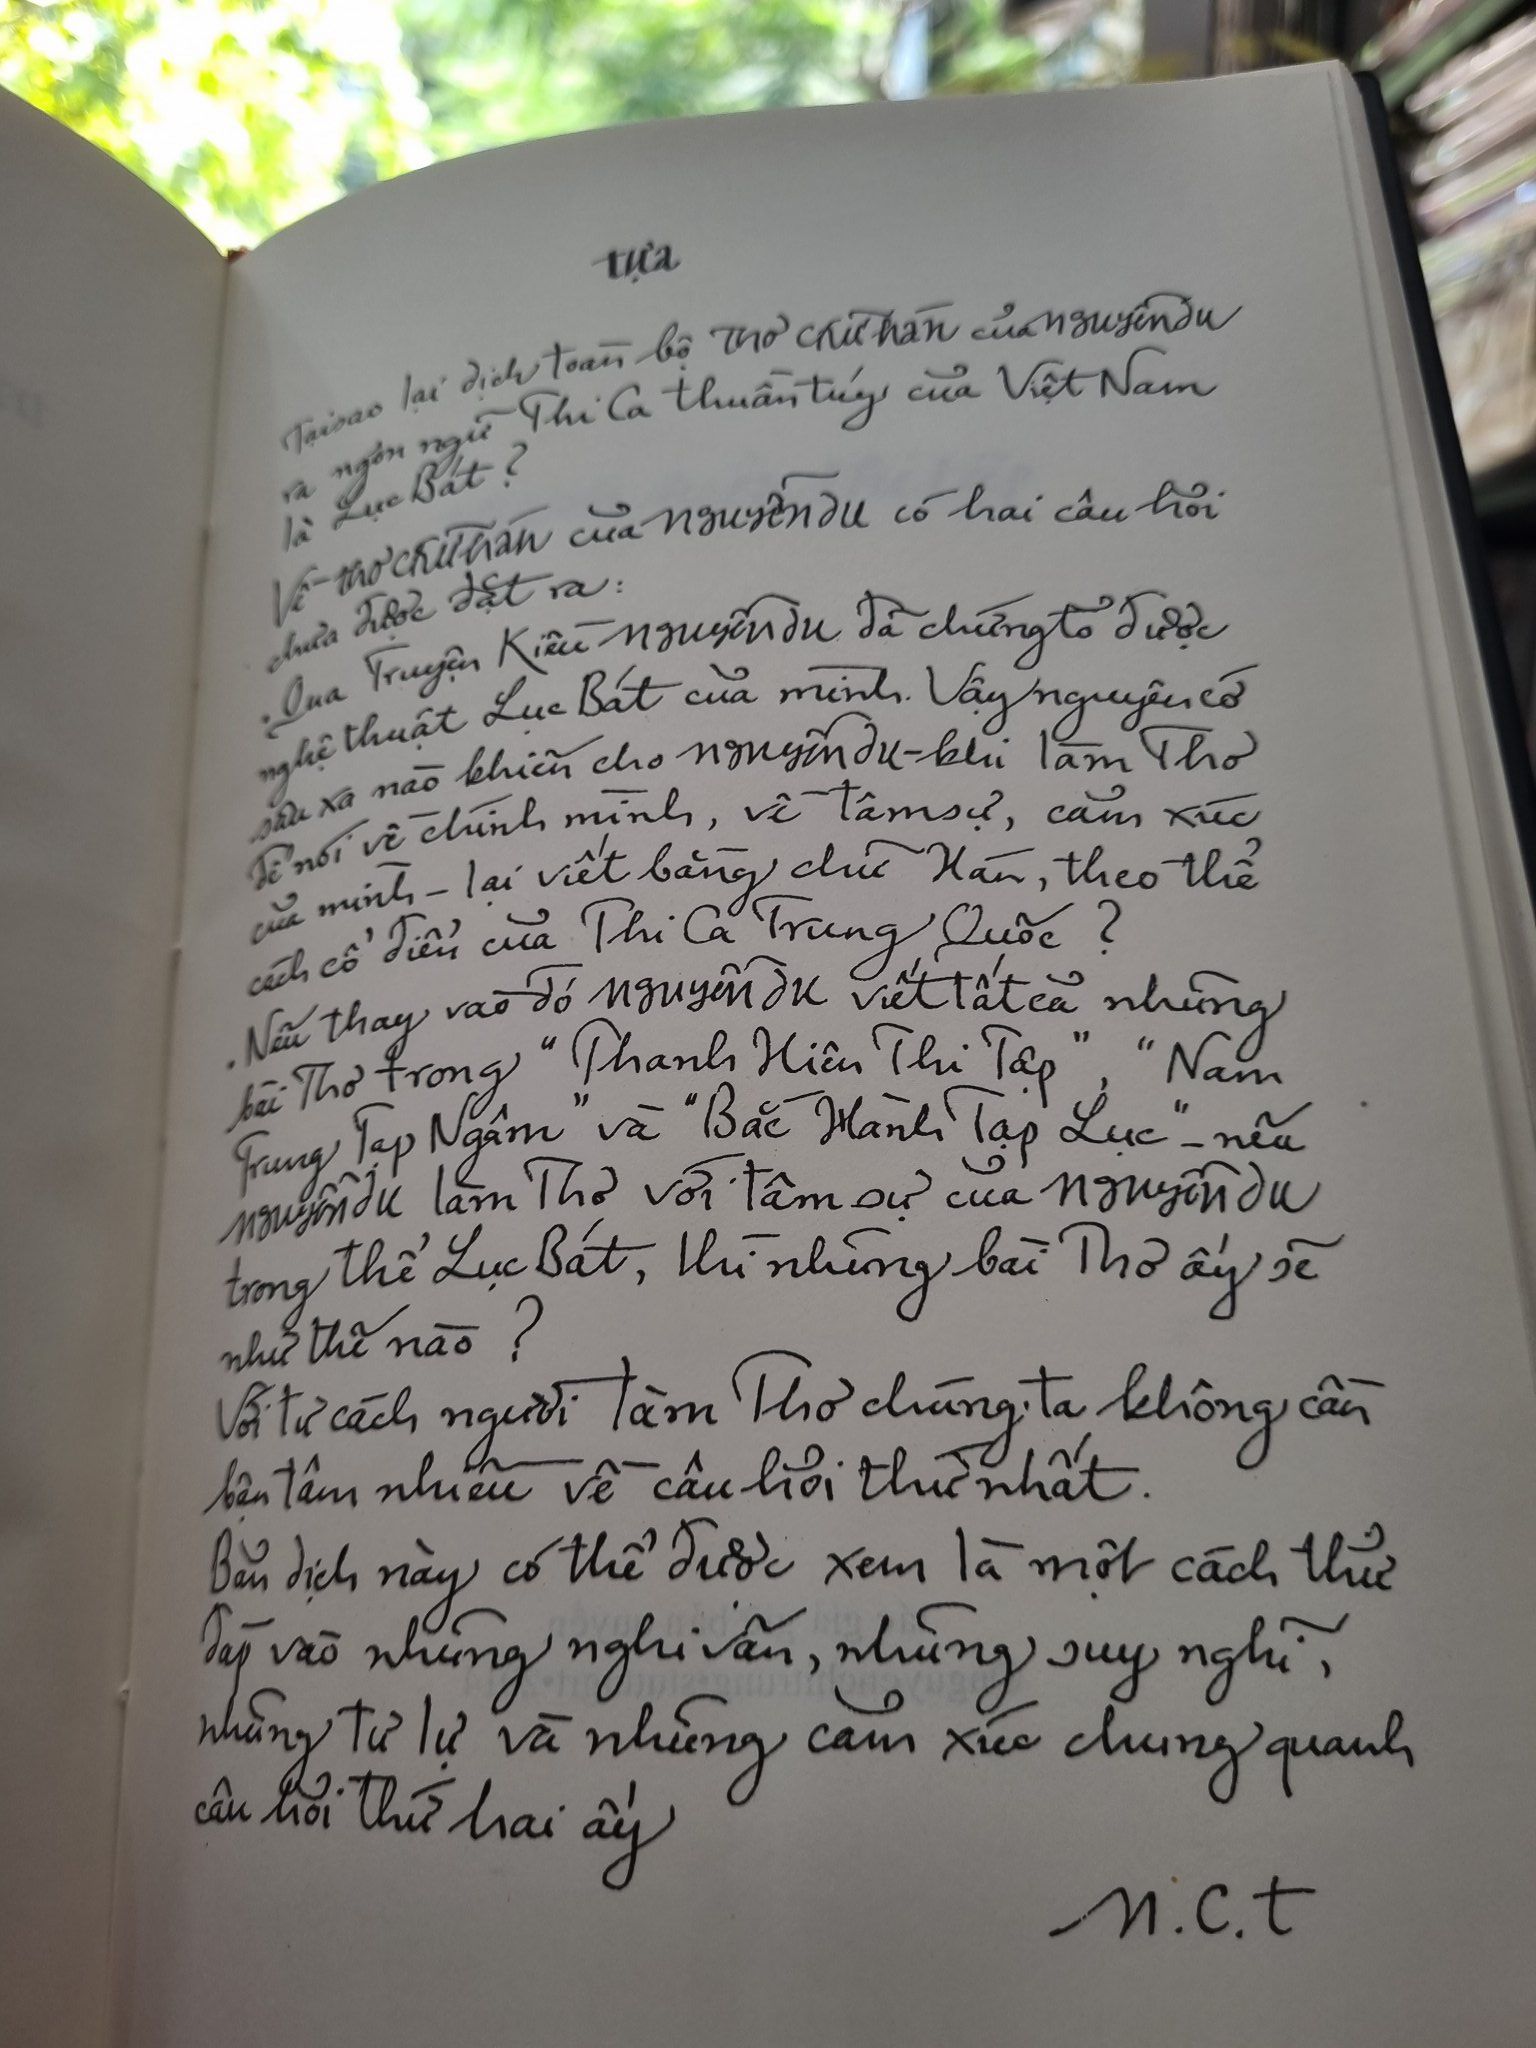 tựa
Tại sao lại dịch toàn bộ Thơ chữ Hán của Nguyễn Du
ra ngôn ngữ Thi Ca thuần túy của Việt Nam
là Lục Bát ?
Về thơ chữ Hán của Nguyễn Du có hai câu hỏi
chưa được đặt ra :
. Qua Truyện Kiều Nguyễn Du đã chứng tỏ được
nghệ thuật Lục Bát của mình. Vậy nguyên cớ
sâu xa nào khiến cho Nguyễn Du - khi làm Thơ
để nói về chính mình, về tâm sự, cảm xúc
của mình - lại viết bằng chữ Hán, theo thể
cách cổ điển của Thi Ca Trung Quốc ?
. Nếu thay vào đó Nguyễn Du viết tất cả những
bài Thơ trong "Thanh Hiên Thi Tập", "Nam
Trung Tạp Ngâm" và "Bắc Hành Tạp Lục" - nếu
Nguyễn Du làm Thơ với tâm sự của Nguyễn Du
trong thể Lục Bát, thì những bài Thơ ấy sẽ
như thế nào ?
Với tư cách người làm Thơ chúng ta không cần
bận tâm nhiều về câu hỏi thứ nhất.
Bản dịch này có thể được xem là một cách thử
đáp vào những nghi vấn, những suy nghĩ,
những tư lự và những cảm xúc chung quanh
câu hỏi thứ hai ấy
N.C.T